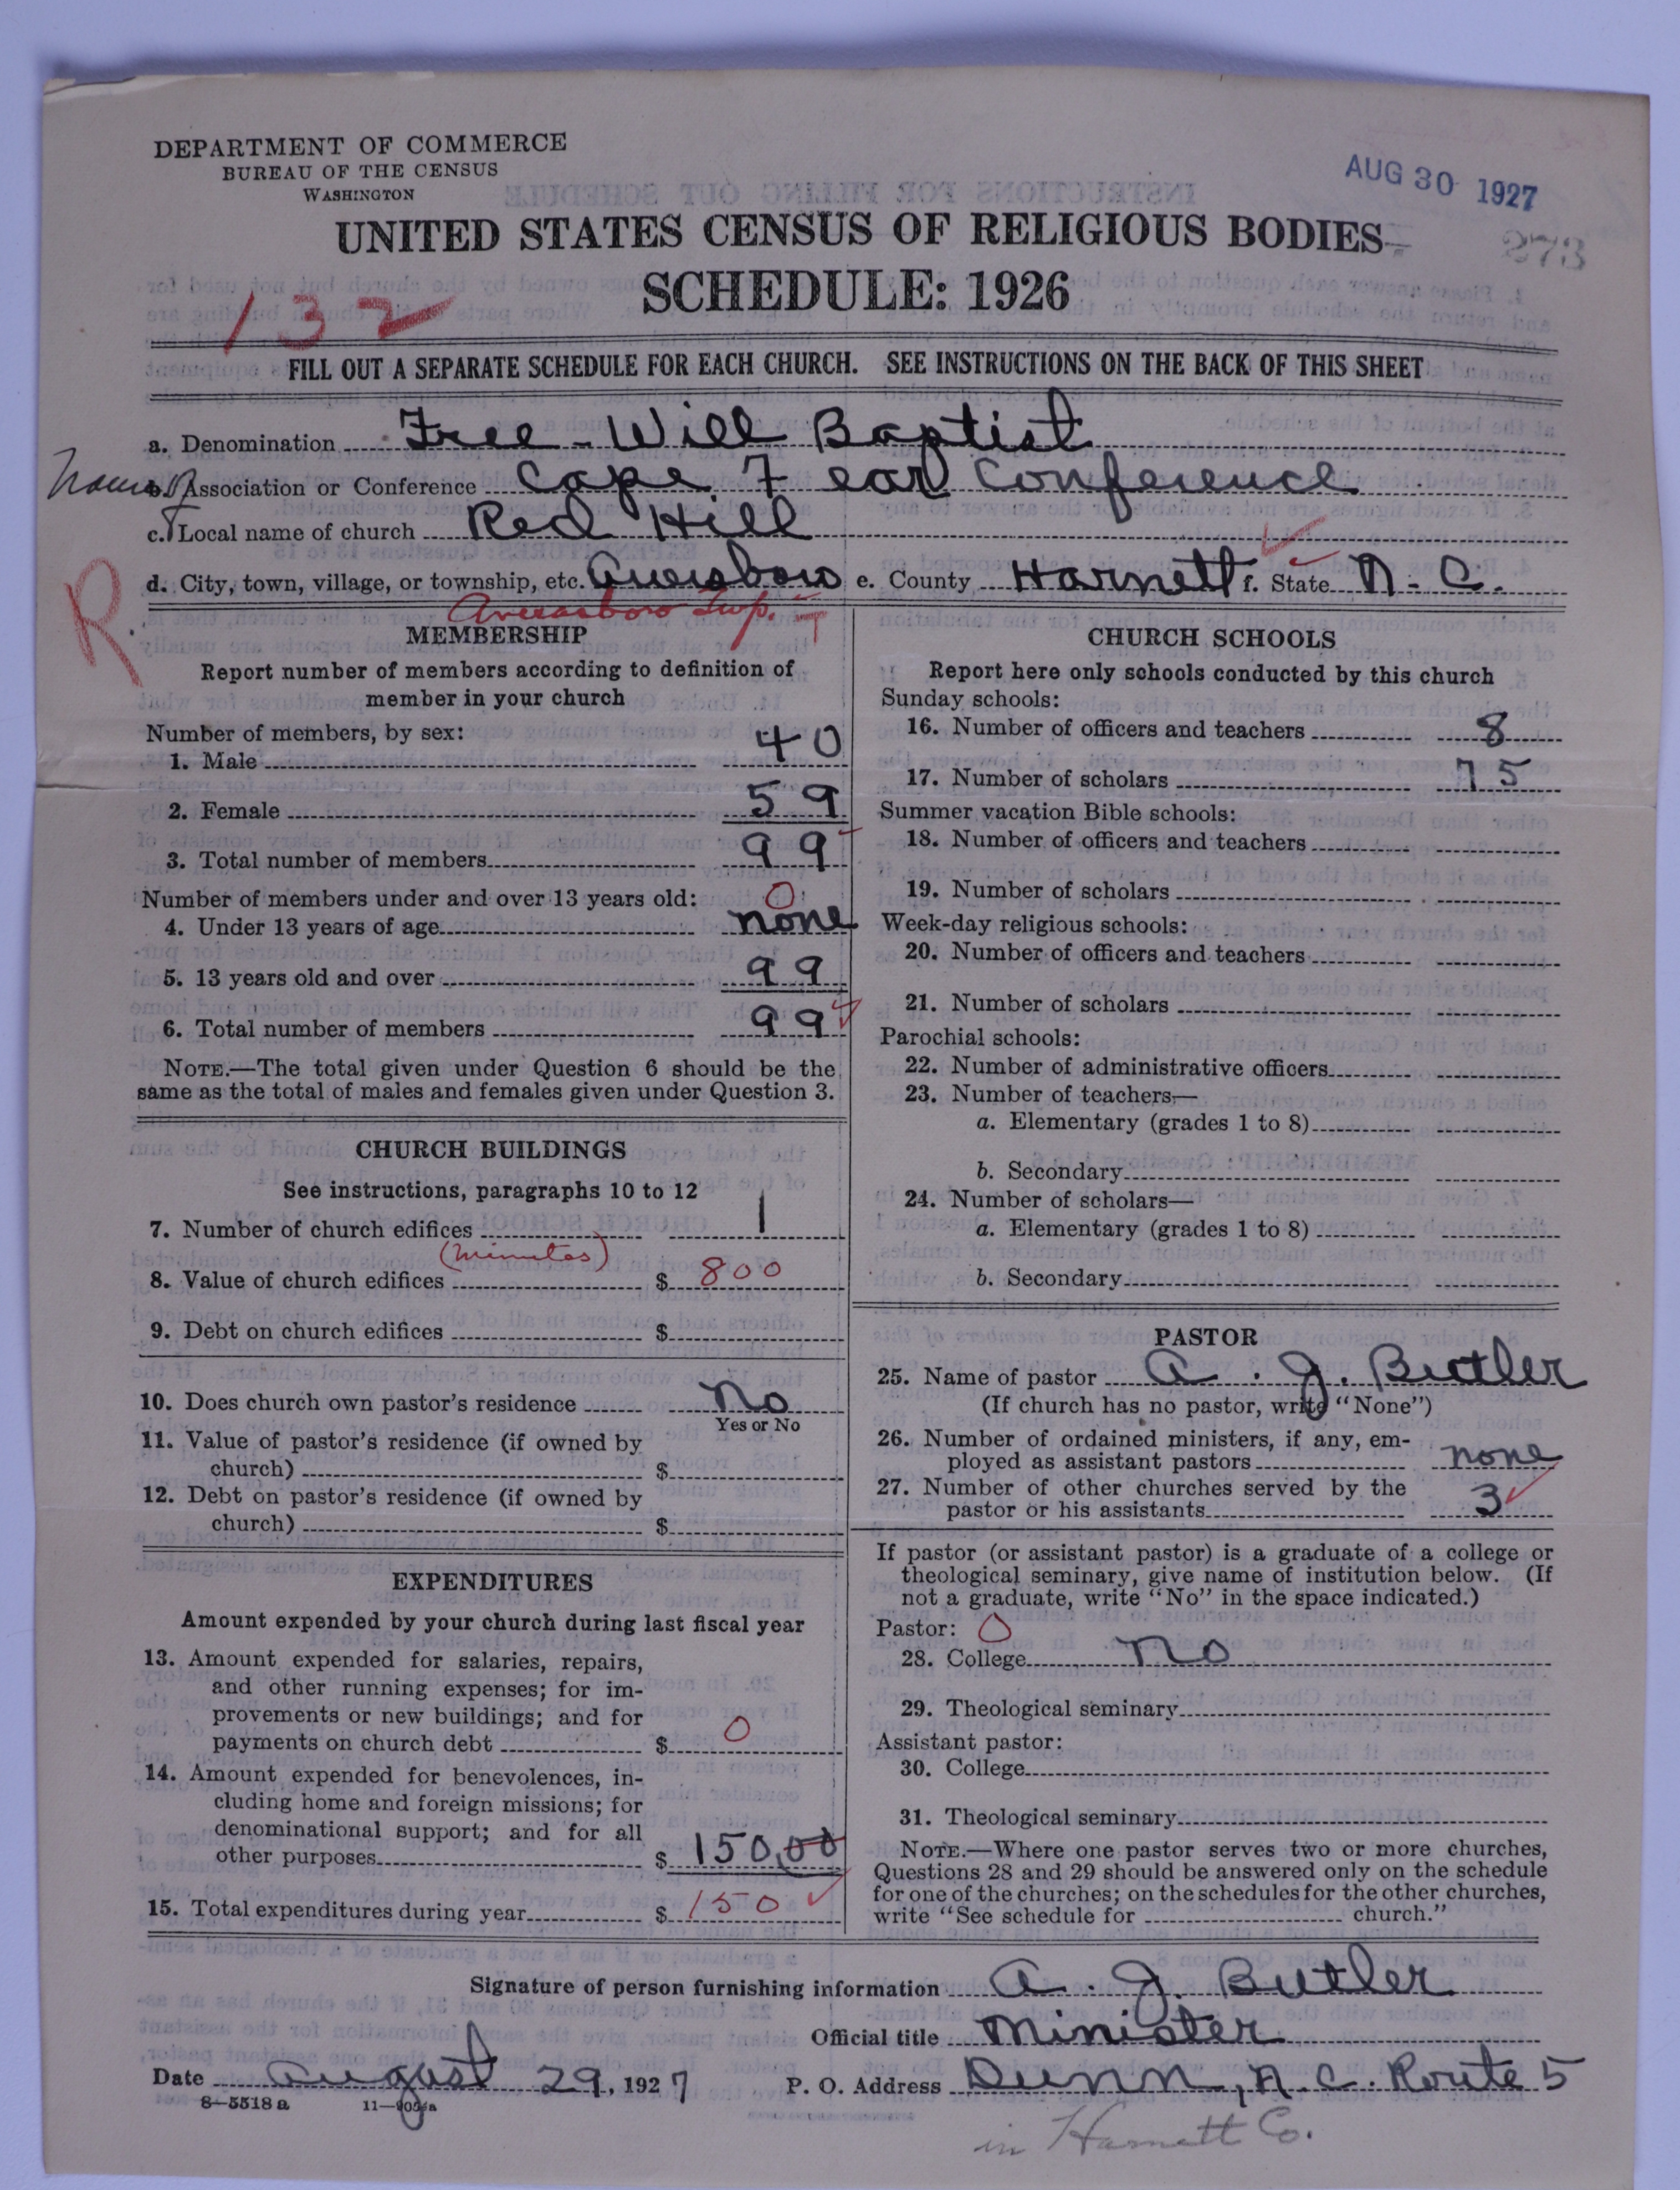 DEPARTMENT OF COMMERCE
BUREAU OF THE CENSUS
WASHINGTON
AUG 30 1927
UNITED STATES CENSUS OF RELIGIOUS BODIES
273
SCHEDULE: 1926
132
FILL OUT A SEPARATE SCHEDULE FOR EACH CHURCH. SEE INSTRUCTIONS ON THE BACK OF THIS SHEET
a. Denomination Free-Will Baptist
b. Association or Conference Cape Fear Conference
c. Local name of church Red Hill
d. City, town, village, or township, etc. Aversboro e. County Harnett f. State N.C.
Averasboro Twp.
R
MEMBERSHIP
Report number of members according to definition of
member in your church
Number of members, by sex:
1. Male 40
2. Female 59
3. Total number of members 99
Number of members under and over 13 years old: 0
4. Under 13 years of age none
5. 13 years old and over 99
6. Total number of members 99
NOTE.—The total given under Question 6 should be the
same as the total of males and females given under Question 3.
CHURCH BUILDINGS
See instructions, paragraphs 10 to 12
7. Number of church edifices 1
(minutes)
8. Value of church edifices $ 800
9. Debt on church edifices $
10. Does church own pastor's residence No
Yes or No
11. Value of pastor's residence (if owned by
church) $
12. Debt on pastor's residence (if owned by
church) $
EXPENDITURES
Amount expended by your church during last fiscal year
13. Amount expended for salaries, repairs,
and other running expenses; for im-
provements or new buildings; and for
payments on church debt $ 0
14. Amount expended for benevolences, in-
cluding home and foreign missions; for
denominational support; and for all
other purposes $ 150.00
15. Total expenditures during year $ 150
CHURCH SCHOOLS
Report here only schools conducted by this church
Sunday schools:
16. Number of officers and teachers 8
17. Number of scholars 75
Summer vacation Bible schools:
18. Number of officers and teachers
19. Number of scholars
Week-day religious schools:
20. Number of officers and teachers
21. Number of scholars
Parochial schools:
22. Number of administrative officers
23. Number of teachers—
a. Elementary (grades 1 to 8)
b. Secondary
24. Number of scholars—
a. Elementary (grades 1 to 8)
b. Secondary
PASTOR
25. Name of pastor A. J. Butler
(If church has no pastor, write "None")
26. Number of ordained ministers, if any, em-
ployed as assistant pastors none
27. Number of other churches served by the
pastor or his assistants 3
If pastor (or assistant pastor) is a graduate of a college or
theological seminary, give name of institution below. (If
not a graduate, write "No" in the space indicated.)
Pastor: 0
28. College no
29. Theological seminary
Assistant pastor:
30. College
31. Theological seminary
NOTE.—Where one pastor serves two or more churches,
Questions 28 and 29 should be answered only on the schedule
for one of the churches; on the schedules for the other churches,
write "See schedule for church."
Signature of person furnishing information A. J. Butler
Official title Minister
Date August 29, 1927 P. O. Address Dunn, N.C. Route 5
8-5518 a
in Harnett Co.